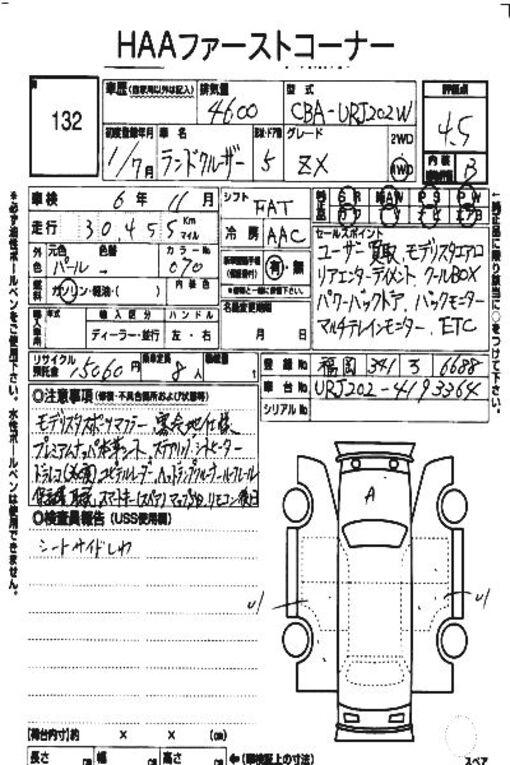 HAAファーストコーナー
132
車歴 (自家用以外は記入) 排気量 4600 型式 CBA-URJ202W 評価点 4.5
初度登録年月 1/7月 車名 ランドクルーザー 形状・ドア数 5 グレード ZX 2WD 4WD 内装 B
車検 6年 11月 シフト FAT 純正品 SR AW PS PW
走行 30455 Km マイル 冷房 AAC セールスポイント
外色 元色 パール 色替 カラーNo 070 有・無
ユーザー買取、モデリスタエアロ
リアエンターテイメント、クールBOX
パワーバックドア、バックモニター
マルチテレインモニター、ETC
燃料 ガソリン・軽油・( ) 内装色
輸入車用 年式 輸入区分 ディーラー・並行 ハンドル 左・右 名義変更期限 月 日
リサイクル預託金 15060円 乗車定員 8人 積載量 t 登録No 福岡 341 5 6688
車台No URJ202-4193364
シリアルNo
○注意事項 (修復・不具合箇所および状態等)
モデリスタスポーツマフラー 寒冷地仕様
プレミアムナッパ本革シート、ステアリング、シートヒーター
ドラレコ
スマートキー(スペア) リモコン後日
○検査員報告 (USS使用欄)
シートサイドしわ
A
U1
U1
【荷台内寸】約 × × (cm)
長さ cm 幅 cm 高さ cm ←(車検証上の寸法)
スペア
＊必ず油性ボールペンをご使用下さい。水性ボールペンは使用できません。
←純正品に限り該当に○をつけて下さい。